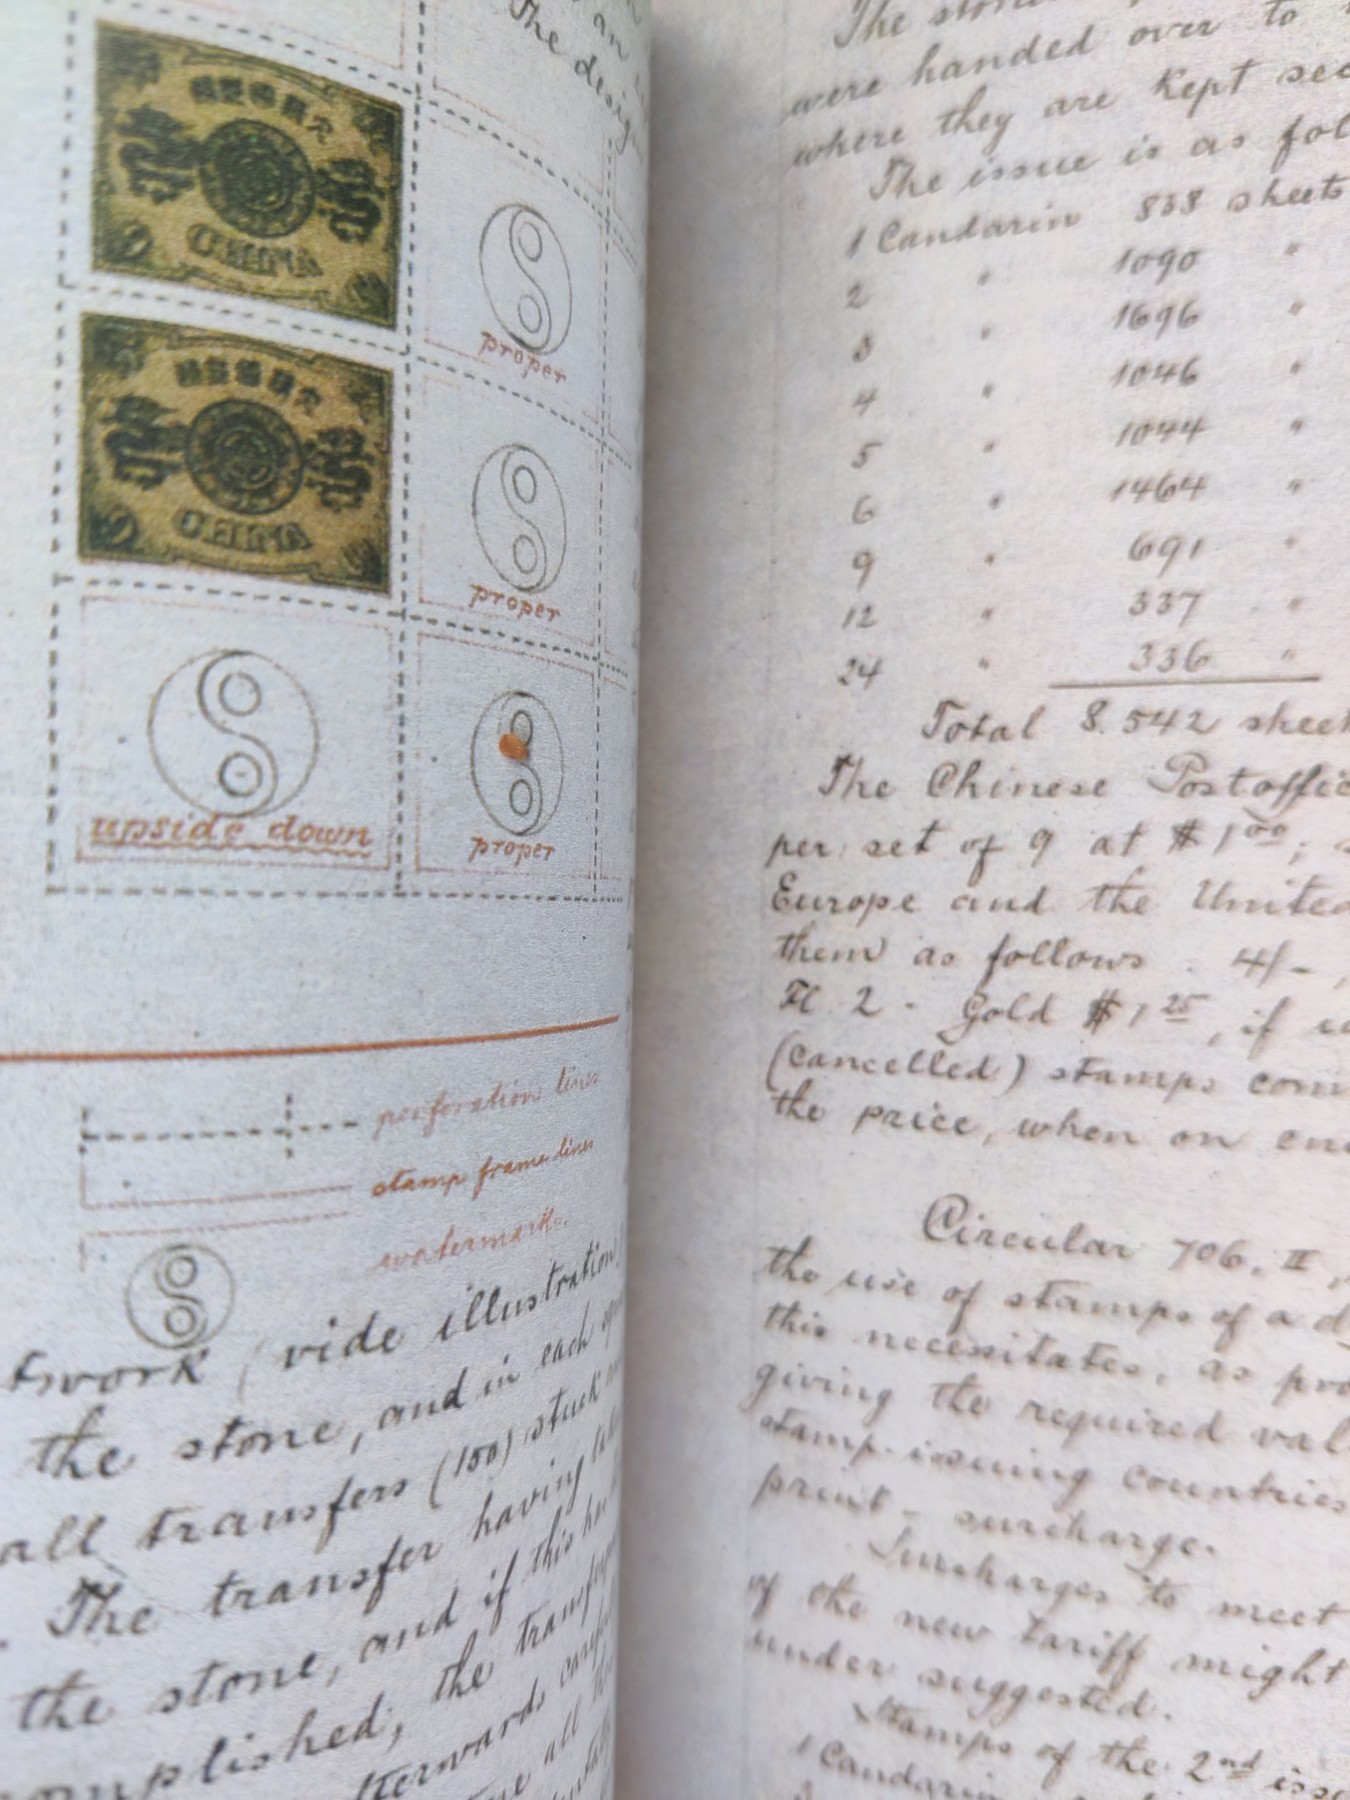 an
The design
CHINA
CHINA
proper
proper
upside down
proper
perforation lines
stamp frame lines
watermark.
twork (vide illustration
the stone, and in each
all transfers (150) stuck
The transfer having
the stone, and if this
omplished, the transfer
fterwards
all
The
were handed over to
where they are kept sec
The issue is as fol
1 Candarin 838 sheets
2 " 1090 "
3 " 1696 "
4 " 1046 "
5 " 1044 "
6 " 1464 "
9 " 691 "
12 " 337 "
24 " 336 "
Total 8.542 sheet
The Chinese Postoffic
per set of 9 at $1 00;
Europe and the United
them as follows. 4/-,
2 - Gold $1 25, if
(cancelled) stamps com
the price, when on
Circular 706. II,
the use of stamps of a d
this necessitates, as pro
giving the required val
stamp-issuing countries
print - surcharge.
Surcharges to meet
of the new tariff might
under suggested.
Stamps of the 2nd iss
1 Candarin